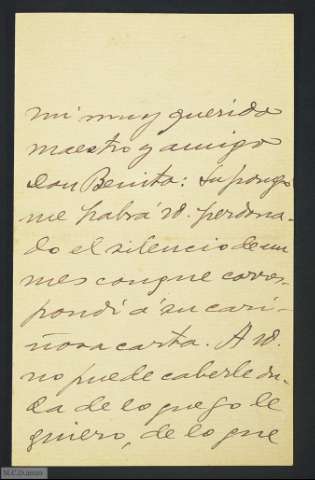 mi muy querido
maestro y amigo
Don Benito: Supongo
me habrá vd. perdona-
do el silencio de un
mes conque corres-
pondí a su cari-
ñosa carta. A vd.
no puede caberle du-
da de lo que yo le
quiero, de lo que